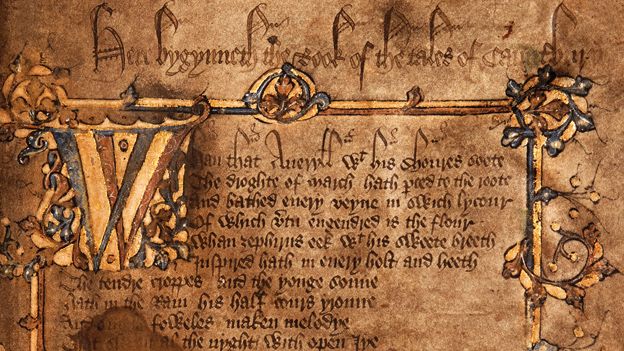 Here bygynneth the Book of the tales of Caunterbury
Whan that Aueryll wt his shoures soote
The droghte of march hath perced to the roote
And bathed euery veyne in swich lycour
Of which vtu engendred is the flour
Whan zephirus eek wt his sweete breeth
Inspired hath in euery holt and heeth
The tendre croppes and the yonge sonne
hath in the Ram his half cours yronne
And foweles maken melodye
the nyght with open Iye